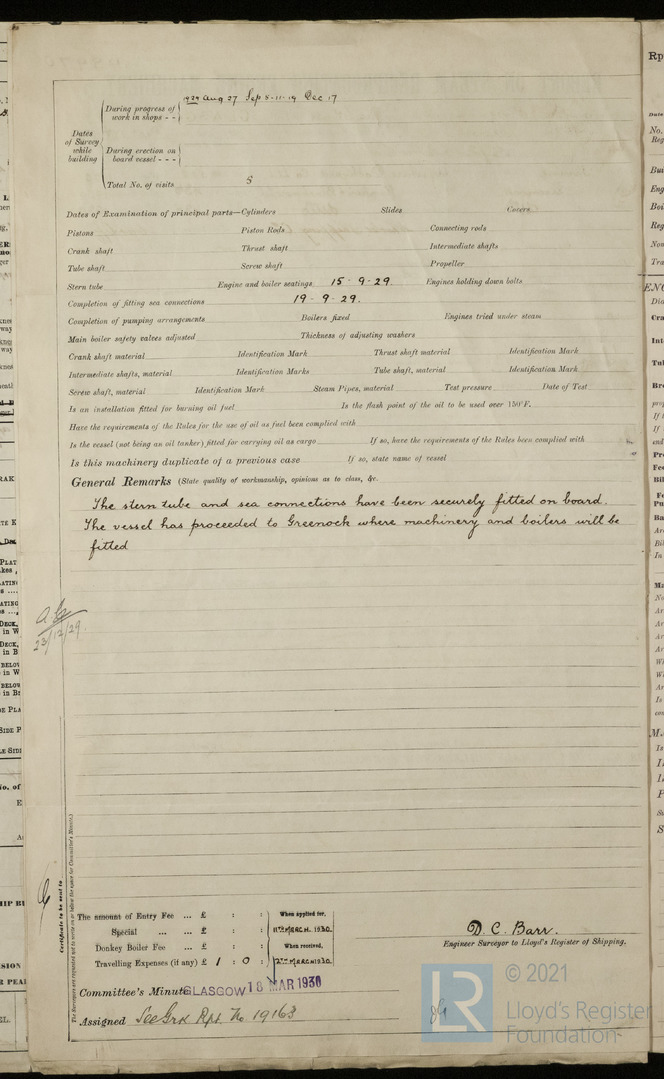 During progress of
work in shops - -
1929 Aug 27 Sep 8-11-19 Dec 17
Dates
of Survey
while
building
During erection on
board vessel - - -
Total No. of visits 5
Dates of Examination of principal parts—Cylinders Slides Covers
Pistons Piston Rods Connecting rods
Crank shaft Thrust shaft Intermediate shafts
Tube shaft Screw shaft Propeller
Stern tube Engine and boiler seatings 15-9-29 Engines holding down bolts
Completion of fitting sea connections 19-9-29.
Completion of pumping arrangements Boilers fixed Engines tried under steam
Main boiler safety valves adjusted Thickness of adjusting washers
Crank shaft material Identification Mark Thrust shaft material Identification Mark
Intermediate shafts, material Identification Marks Tube shaft, material Identification Mark
Screw shaft, material Identification Mark Steam Pipes, material Test pressure Date of Test
Is an installation fitted for burning oil fuel Is the flash point of the oil to be used over 150°F.
Have the requirements of the Rules for the use of oil as fuel been complied with
Is the vessel (not being an oil tanker) fitted for carrying oil as cargo If so, have the requirements of the Rules been complied with
Is this machinery duplicate of a previous case If so, state name of vessel
General Remarks (State quality of workmanship, opinions as to class, &c.
The stern tube and sea connections have been securely fitted on board.
The vessel has proceeded to Greenock where machinery and boilers will be
fitted
23/12/29.
Certificate to be sent to
The Surveyors are requested not to write on or below the space for Committee's Minute.)
The amount of Entry Fee ... £ : : When applied for,
Special ... ... £ : : 11TH MARCH. 1930
Donkey Boiler Fee ... £ : : When received,
Travelling Expenses (if any) £ 1 : 0 : MARCH 1930
D. C. Barr.
Engineer Surveyor to Lloyd's Register of Shipping.
Committee's Minute GLASGOW 18 MAR 1930
Assigned See Grk Rpt. No 19163
LR
© 2021
Lloyd's Register
Foundation